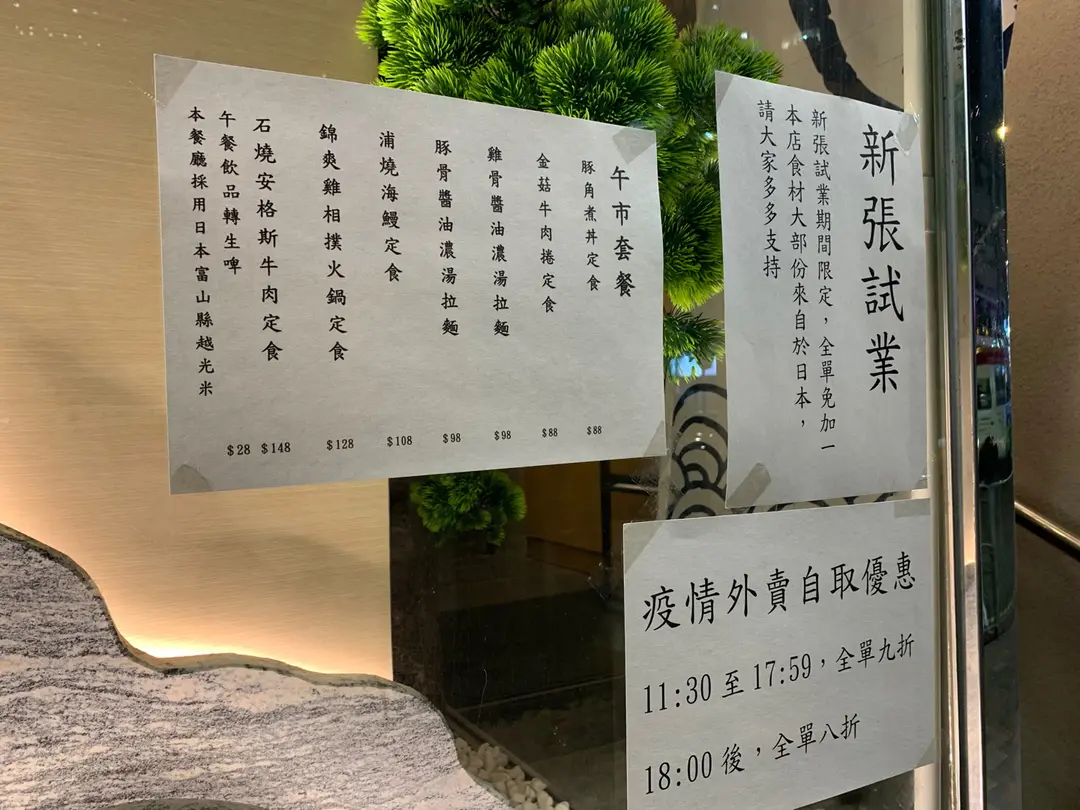 午市套餐
豚角煮丼定食 $88
金菇牛肉捲定食 $88
雞骨醬油濃湯拉麵 $98
豚骨醬油濃湯拉麵 $98
浦燒海鰻定食 $108
錦爽雞相撲火鍋定食 $128
石燒安格斯牛肉定食 $148
午餐飲品轉生啤 $28
本餐廳採用日本富山縣越光米
新張試業
新張試業期間限定，全單免加一
本店食材大部份來自於日本，
請大家多多支持
疫情外賣自取優惠
11:30 至 17:59，全單九折
18:00 後，全單八折